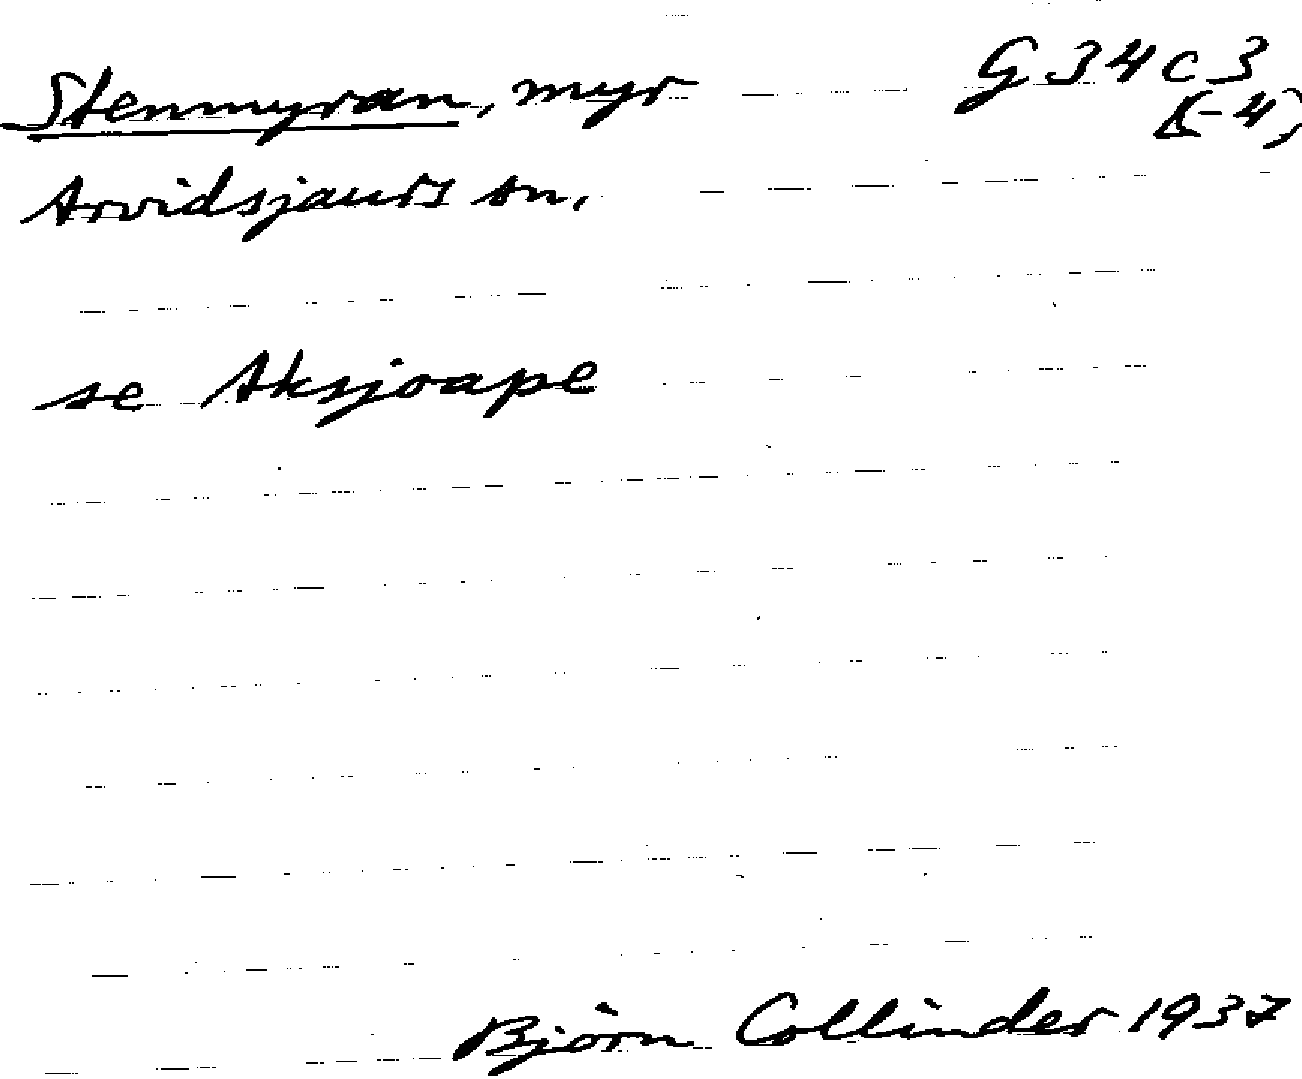 Stenmyran, myr G 34 c 3
Arvidsjaurs sn.
se Aksjoape
Björn Collinder 1937